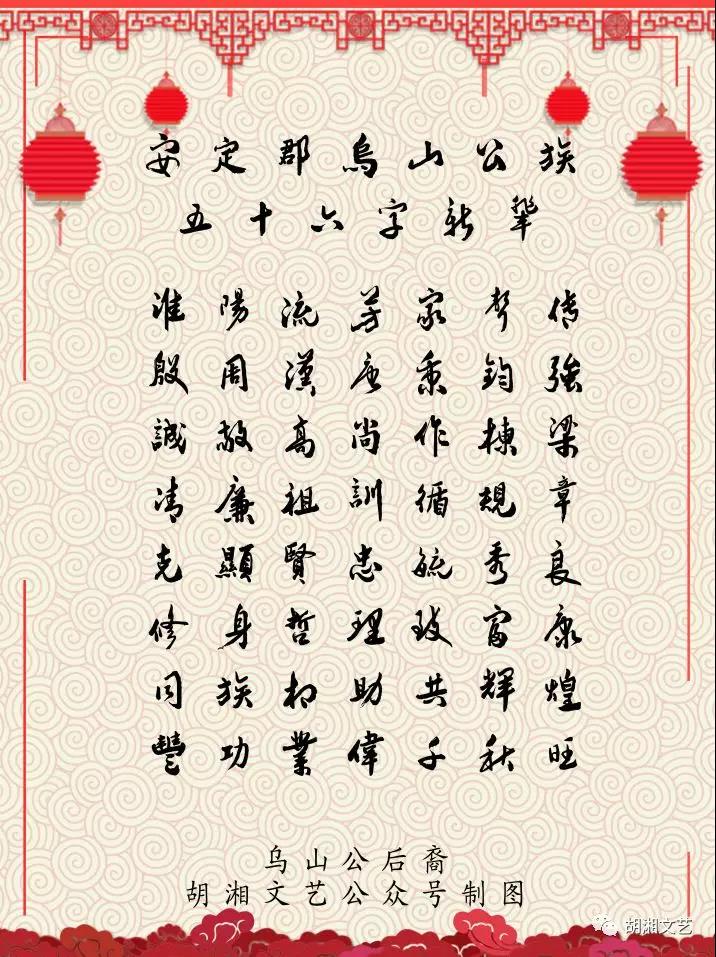 安定郡烏山公族
五十六字新輩
淮陽流芳家聲傳
殷周漢唐秉鈞強
誠敬高尚作棟梁
清廉祖訓循規章
克顯賢忠毓秀良
修身哲理致富康
同族相助共輝煌
豐功業偉千秋旺
乌山公后裔
胡湘文艺公众号制图
胡湘文艺